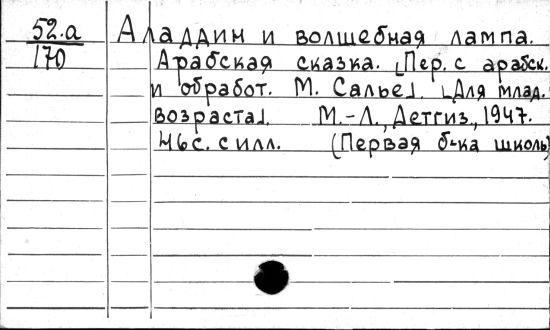 52.а Аладдин и волшебная лампа.
170 Арабская сказка. [Пер. с арабск.
и обработ. М. Салье]. [Для млад.
возраста]. М.-Л., Детгиз, 1947.
46с. с илл. (Первая б-ка школь